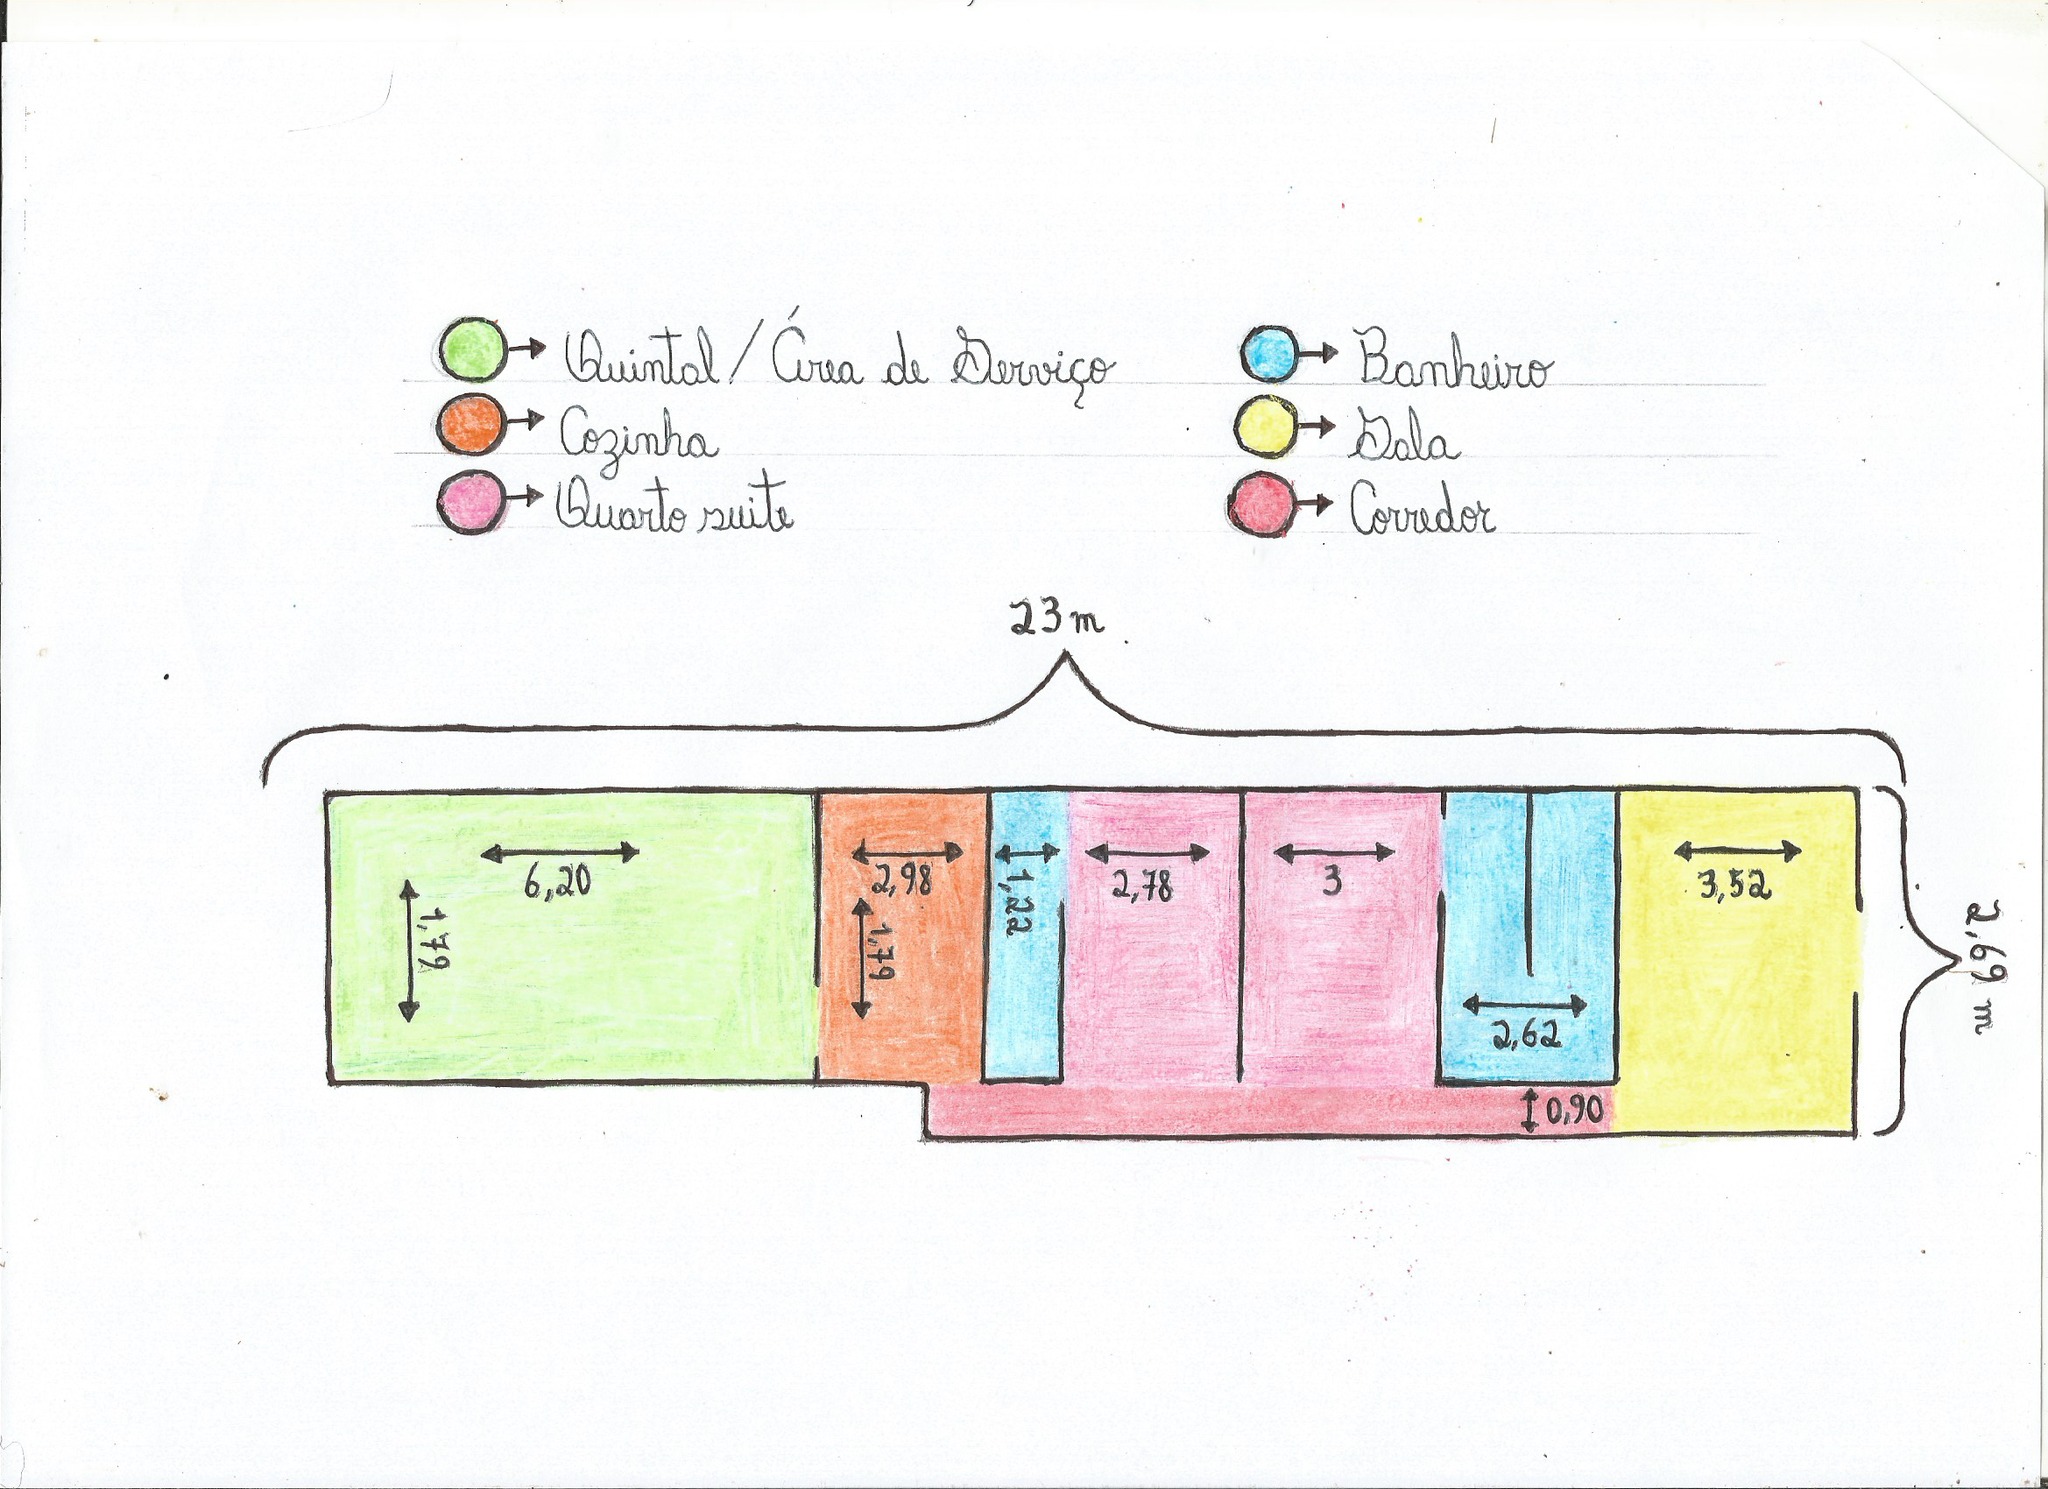 Quintal / Área de Serviço
Cozinha
Quarto suite
Banheiro
Sala
Corredor
23 m
6,20
1,79
2,98
1,79
1,22
2,78
3
2,62
3,52
0,90
2,69 m